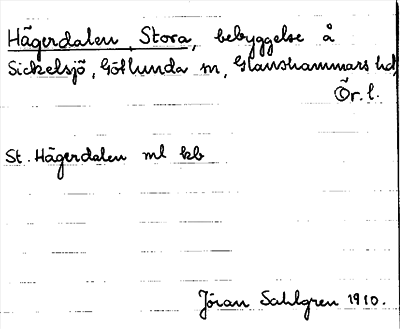 Hägerdalen, Stora, bebyggelse å
Sickelsjö, Götlunda sn, Glanshammars hd,
Ör. l.
St. Hägerdalen ml kb
Jöran Sahlgren 1910.